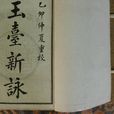 乙卯仲夏重校
玉臺新詠